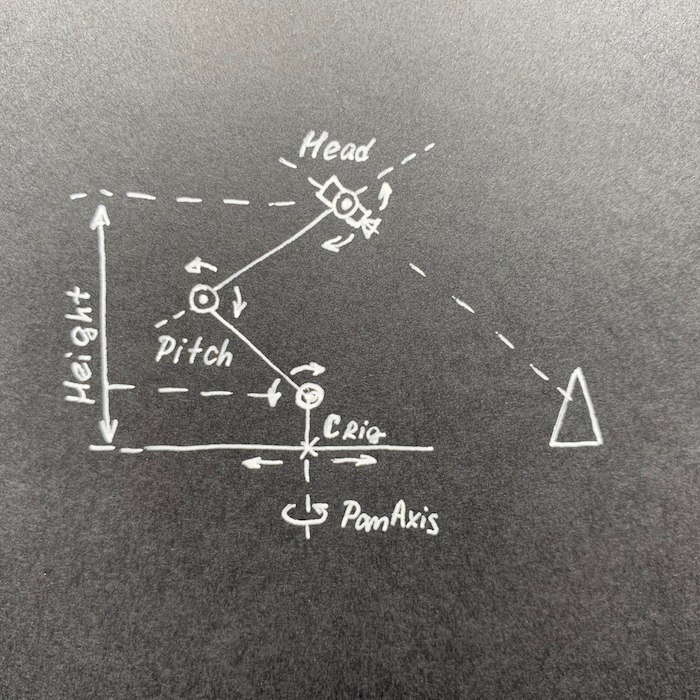 Head
Height
Pitch
CRig
PanAxis